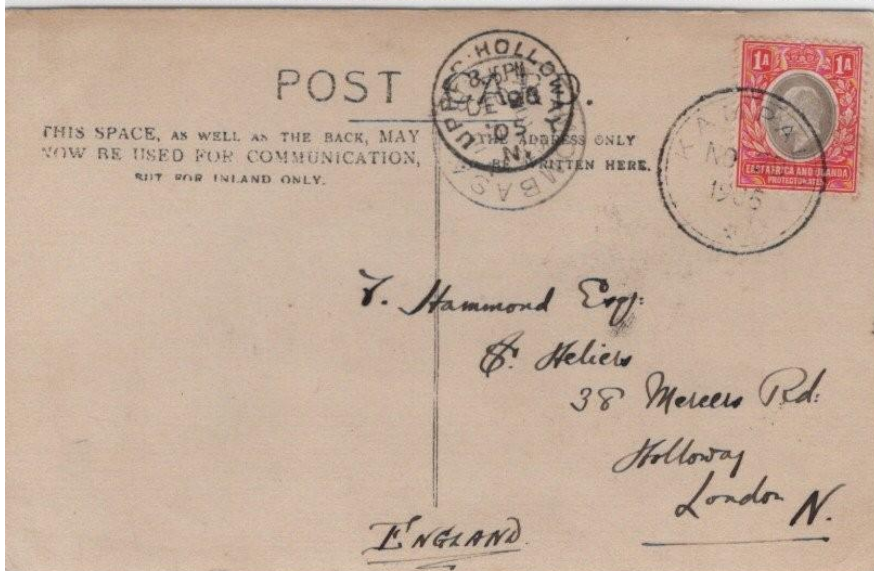 POST
THIS SPACE, AS WELL AS THE BACK, MAY
NOW BE USED FOR COMMUNICATION,
BUT FOR INLAND ONLY.
THE ADDRESS ONLY
BE WRITTEN HERE.
UPPER HOLLOWAY
8.15PM
DE
05
N.
MBASA
1A 1A
EAST AFRICA AND UGANDA
PROTECTORATES
NO
Hammond Esq:
St. Heliers
38 Mercers Rd:
Holloway
London N.
ENGLAND.